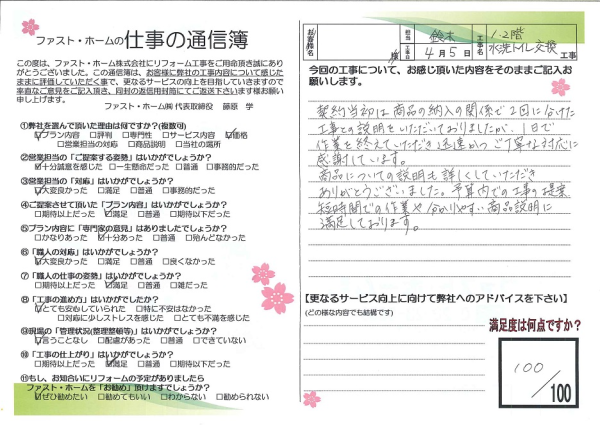 ファスト・ホームの仕事の通信簿
この度は、ファスト・ホーム株式会社にリフォーム工事をご用命頂き誠にあり
がとうございました。この通信簿は、お客様に弊社の工事内容について感じた
ままに評価していただく事で、更なるサービスの向上を目指していきますので
率直なご意見をご記入頂き、同封の返信用封筒にてご返送下さいます様お願い
申し上げます。
ファスト・ホーム㈱ 代表取締役 藤原 学
①弊社を選んで頂いた理由は何ですか?(複数可)
☑プラン内容 □評判 □専門性 □サービス内容 ☑価格
□営業担当の対応 □商品説明 □当社の場所
②営業担当の「ご提案する姿勢」はいかがでしょうか?
☑十分誠意を感じた □一生懸命だった □普通 □事務的だった
③営業担当の「対応」はいかがでしょうか?
☑大変良かった □満足 □普通 □事務的だった
④ご提案させて頂いた「プラン内容」はいかがでしょうか?
□期待以上だった ☑満足 □普通 □期待以下だった
⑤プラン内容に「専門家の意見」はありましたでしょうか?
□かなりあった ☑十分あった □普通 □殆んどなかった
⑥「職人の対応」はいかがでしょうか?
☑大変良かった □満足 □普通 □良くなかった
⑦「職人の仕事の姿勢」はいかがでしょうか?
□期待以上だった ☑満足 □普通 □雑だった
⑧「工事の進め方」はいかがでしたか?
☑とても安心していられた □特に不安はなかった
□対応に少しストレスを感じた □とても不満を感じた
⑨現場の「管理状況(整理整頓等)」はいかがでしょうか?
☑言うことなし □配慮があった □普通 □できていない
⑩「工事の仕上がり」はいかがでしょうか?
□期待以上だった ☑満足 □普通 □期待以下だった
⑪もし、お知合いにリフォームの予定がありましたら
ファスト・ホームを「お勧め」頂けますでしょうか?
☑ぜひ勧めたい □勧めてもいい □わからない □勧められない
お客様名
様
担当 鈴木
工事日 4月5日
工事名 1・2階
水洗トイレ交換 工事
今回の工事について、お感じ頂いた内容をそのままご記入お
願いします。
契約当初は商品の納入の関係で2回に分けた
工事との説明をいただいておりましたが、1日で
作業を終えていただき迅速かつご丁寧な対応に
感謝しています。
商品についての説明も詳しくしていただき
ありがとうございました。予算内での工事の提案
短時間での作業や分かりやすい商品説明に
満足しております。
【更なるサービス向上に向けて弊社へのアドバイスを下さい】
(どの様な内容でも結構です)
満足度は何点ですか?
100/100